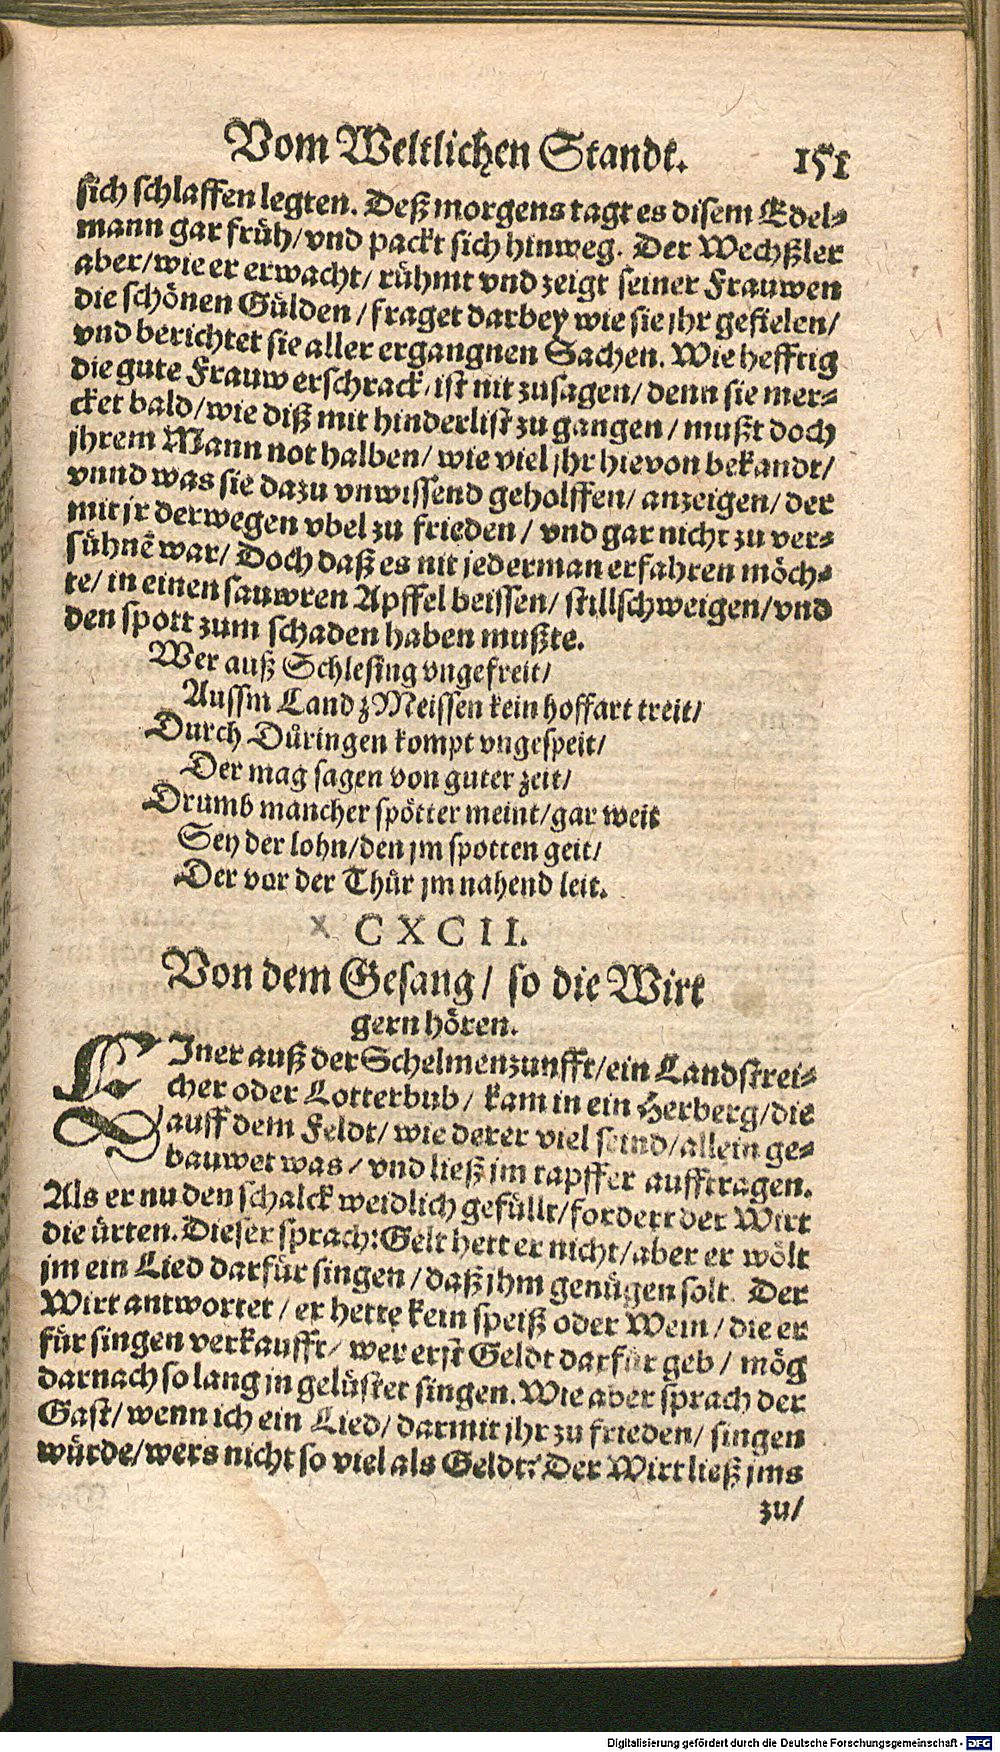 Vom Weltlichen Standt. 151
sich schlaffen legten. Deß morgens tagt es disem Edel⸗
mann gar früh/ vnd packt sich hinweg. Der Wechßler
aber/ wie er erwacht/ rühmt vnd zeigt seiner Frauwen
die schönen Gülden/ fraget darbey wie sie jhr gefielen/
vnd berichtet sie aller ergangnen Sachen. Wie hefftig
die gute Frauw erschrack/ ist nit zusagen/ denn sie mer⸗
cket bald/ wie diß mit hinderlist zu gangen/ mußt doch
jhrem Mann not halben/ wie viel jhr hievon bekandt/
vnnd was sie dazu vnwissend geholffen/ anzeigen/ der
mit jr derwegen vbel zu frieden/ vnd gar nicht zu ver⸗
sühnẽ war/ Doch daß es nit jederman erfahren möch⸗
te/ in einen sauwren Apffel beissen/ stillschweigen/ vnd
den spott zum schaden haben mußte.
Wer auß Schlesing vngefreit/
Aussm Land z Meissen kein hoffart treit/
Durch Düringen kompt vngespeit/
Der mag sagen von guter zeit/
Drumb mancher spötter meint/ gar weit
Sey der lohn/ den jm spotten geit/
Der vor der Thür jm nahend leit.
CXCII.
Von dem Gesang/ so die Wirt
gern hören.
EIner auß der Schelmenzunfft/ ein Landstrei⸗
cher oder Lotterbub/ kam in ein Herberg/ die
auff dem Feldt/ wie derer viel seind/ allein ge⸗
bauwet was/ vnd ließ jm tapffer aufftragen.
Als er nu den schalck weidlich gefüllt/ fordert der Wirt
die ürten. Dieser sprach: Gelt hett er nicht/ aber er wölt
jm ein Lied darfür singen/ daß jhm genügen solt. Der
Wirt antwortet/ er hette kein speiß oder Wein/ die er
für singen verkaufft/ wer erst Geldt darfür geb/ mög
darnach so lang jn gelüstet singen. Wie aber sprach der
Gast/ wenn ich ein Lied/ darmit jhr zu frieden/ singen
würde/ wers nicht so viel als Geldt? Der Wirt ließ jms
zu/
Digitalisierung gefördert durch die Deutsche Forschungsgemeinschaft - DFG